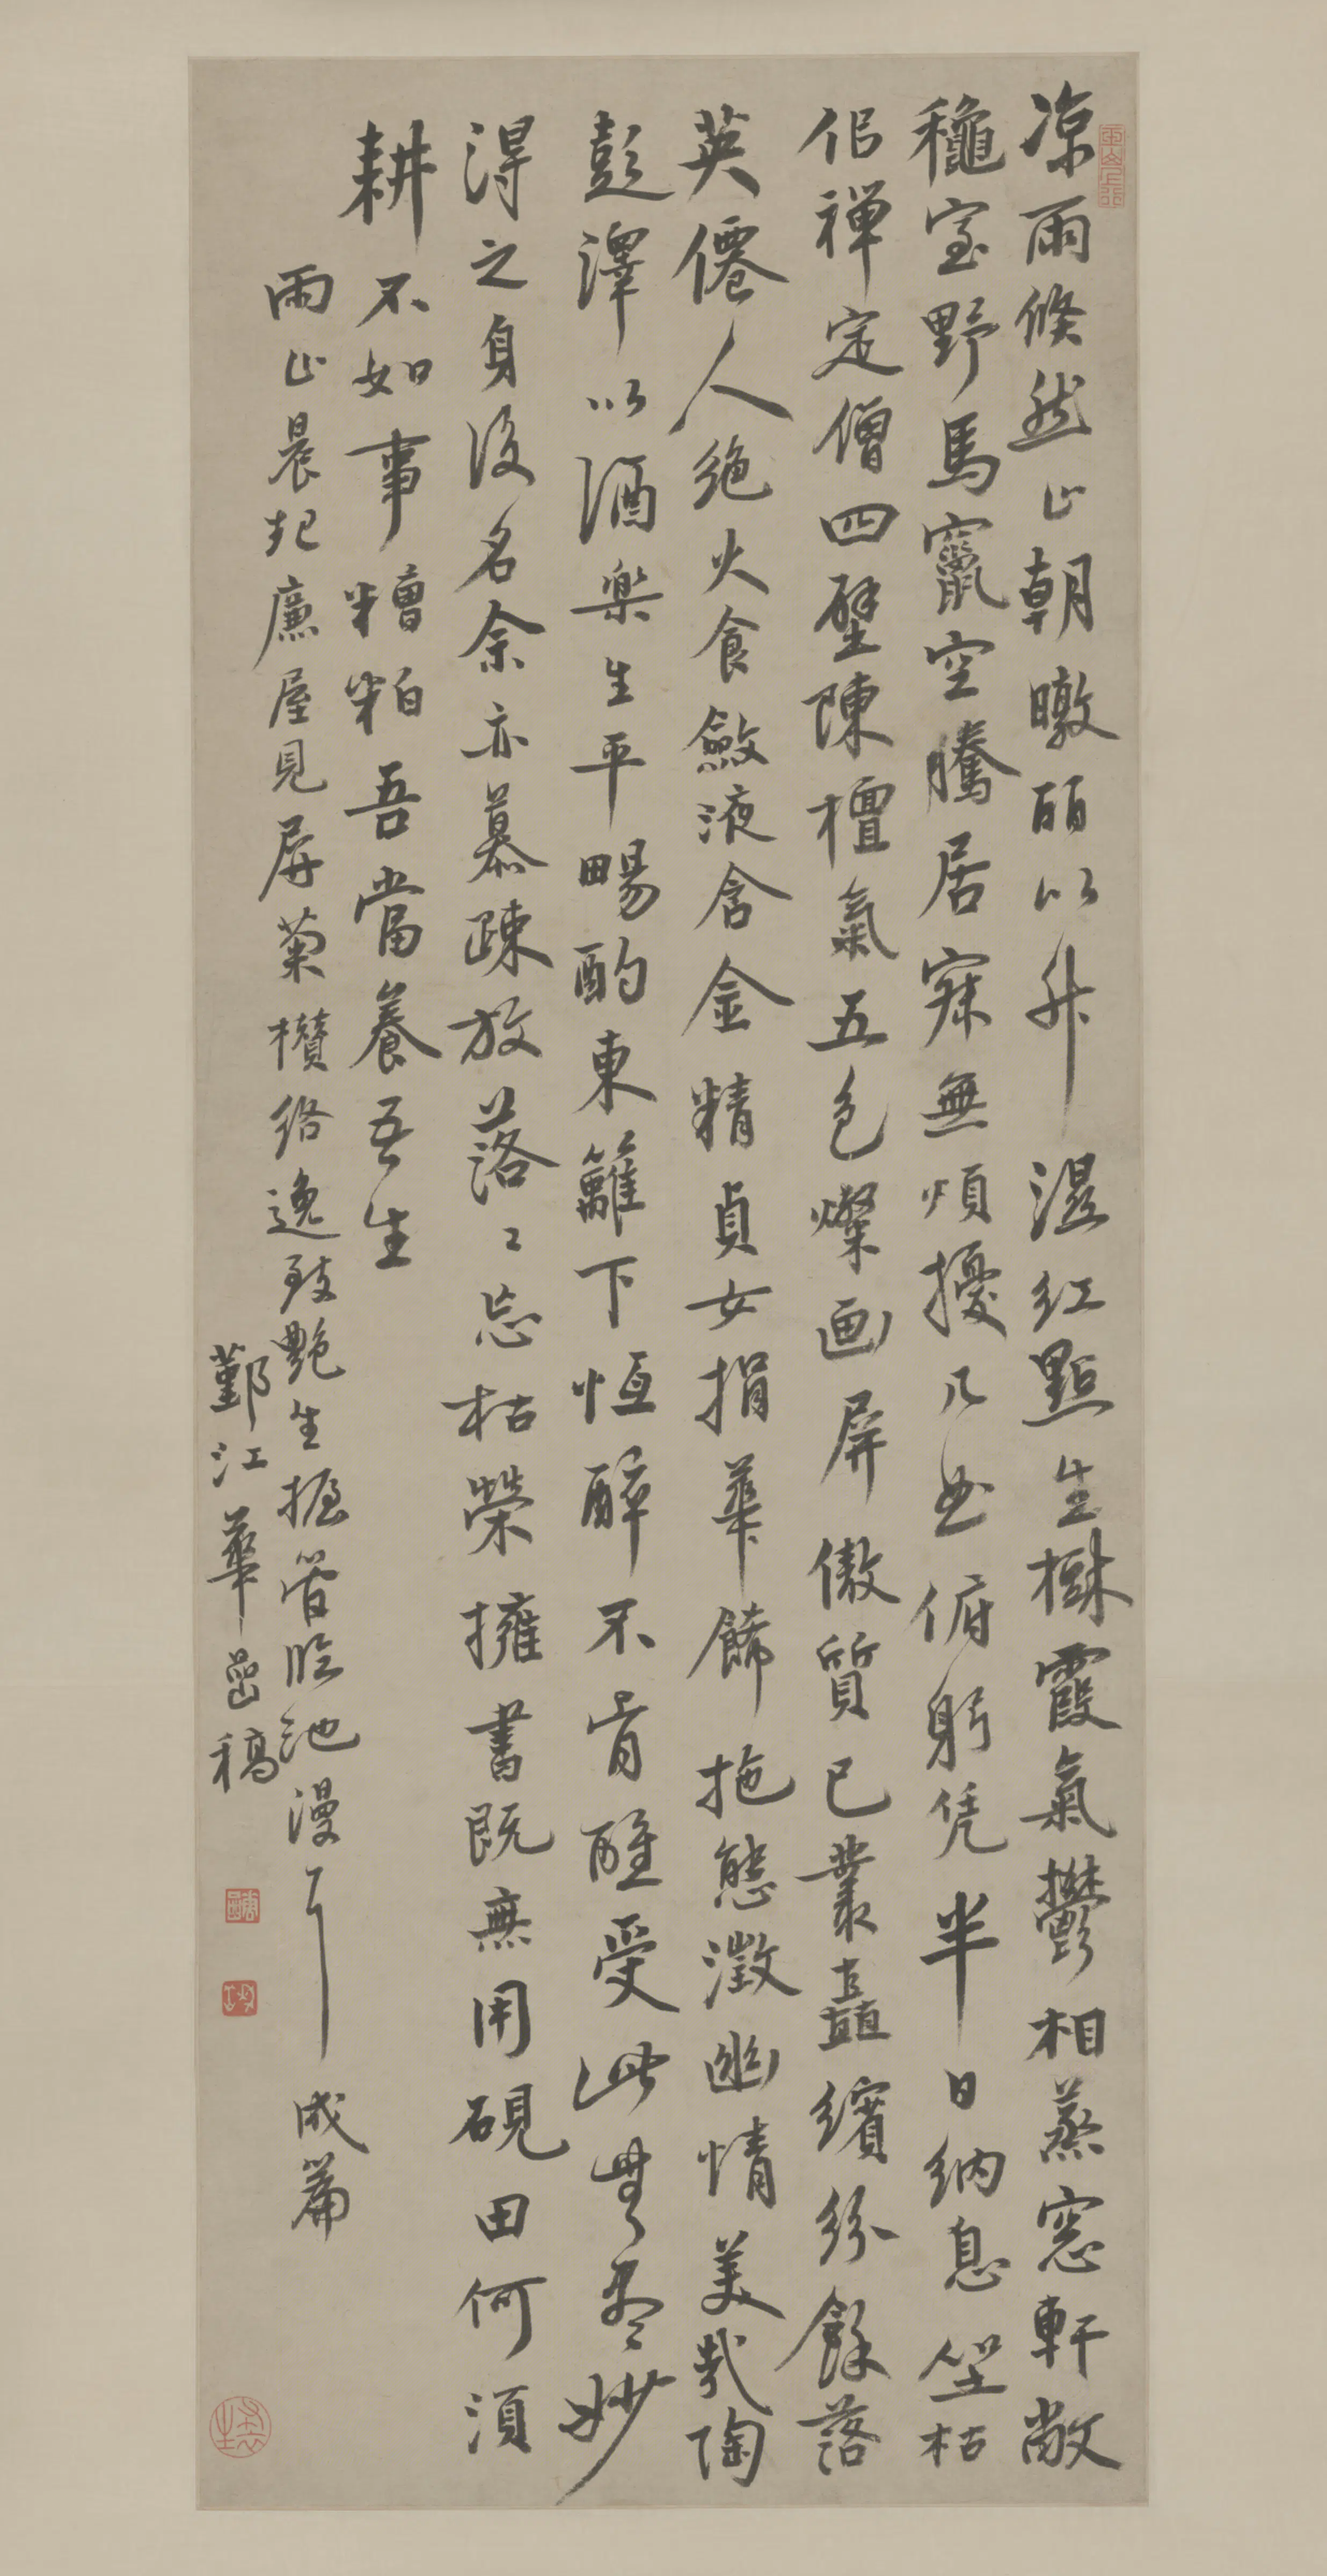 凉雨倏然止朝暾丽以升湿红點生樹霞氣鬱相蒸窓軒敞
穐室野馬竄空騰居寂無煩擾几出俯躬凭半日纳息坐枯
似禅定僧四壁陳檀氣五色燦画屏傲質已叢矗繽紛餘落
英僊人绝火食斂液含金精貞女捐華餙拖態澂幽情美哉陶
彭澤以酒樂生平暢酌東籬下恒醉不肯醒受此無盡妙
得之身後名余亦慕疎放落〻忘枯榮擁書既無用硯田何須
耕不如事糟粕吾當養吾生
雨止晨起廉屋見屏菊攢络逸致艷生握管臨池漫、成篇
鄞江華嵒稿